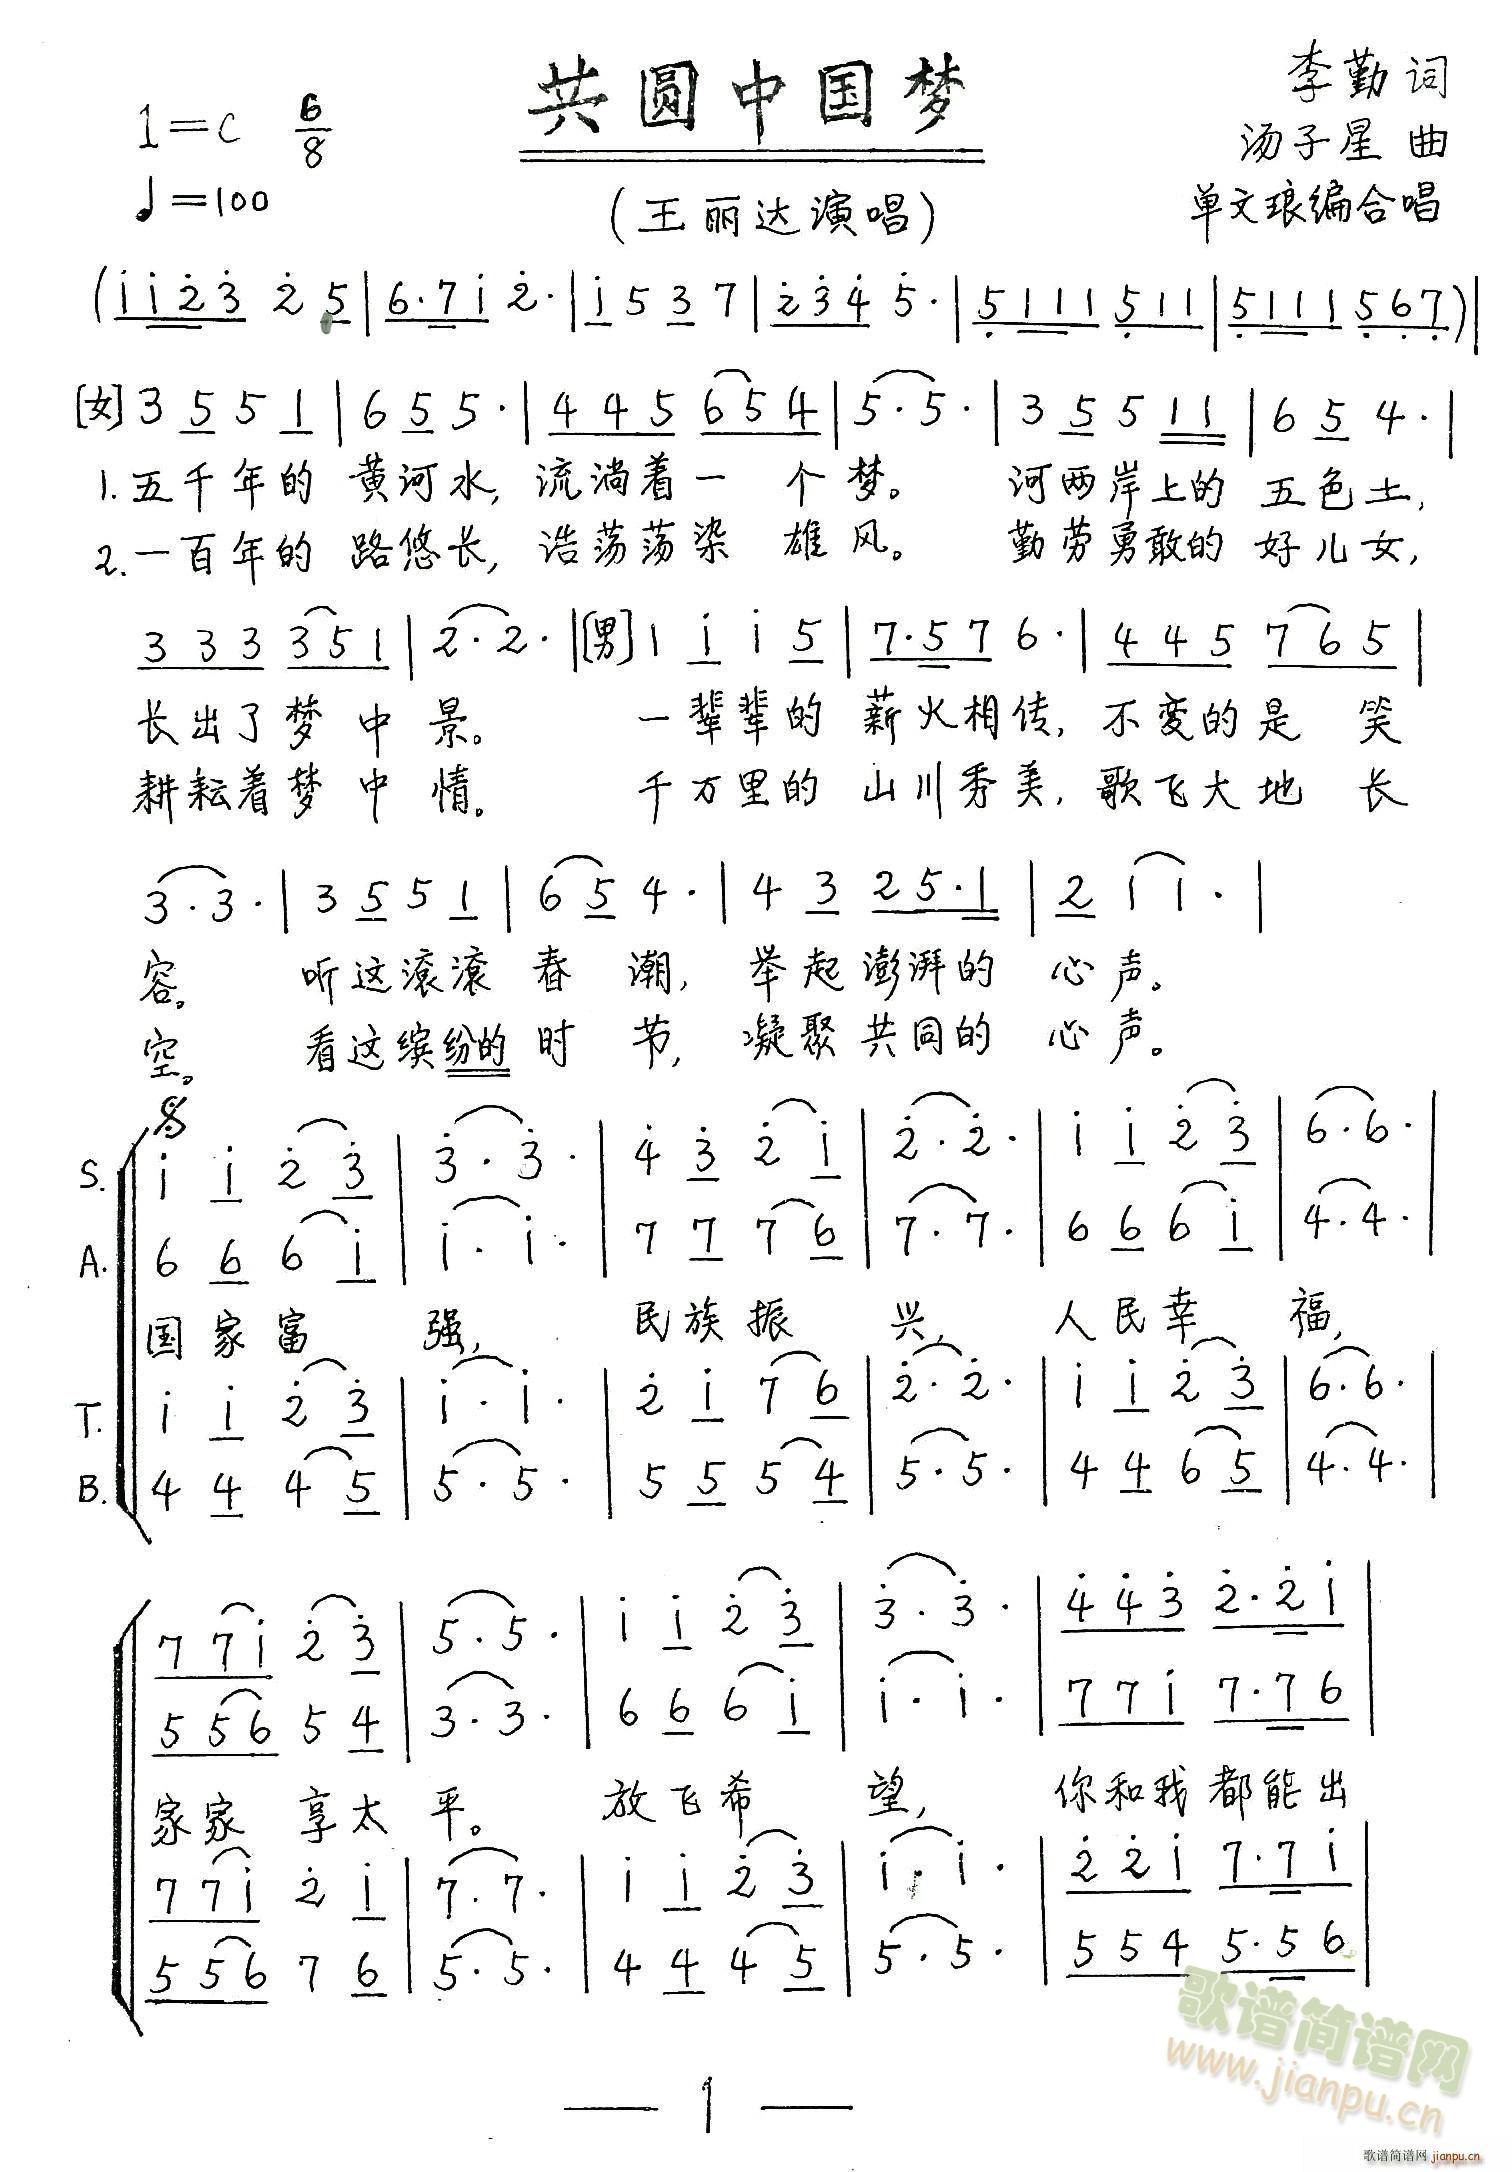 共圆中国梦
李勤词
1=C 6/8
汤子星 曲
♩=100
(王丽达演唱)
单文琅编合唱
(i i 2̇ 3̇ 2̇ 5 | 6·7 i 2̇· | i 5 3 7 | 2̇ 3̇ 4̇ 5̇· | 5̣ 1 1 1 5̣ 1 1 | 5̣ 1 1 1 5̣ 6̣ 7̣) |
[女] 3 5 5 1 | 6 5 5· | 4 4 5 6 5 4 | 5· 5· | 3 5 5 1 1 | 6 5 4· |
1. 五千年的 黄河水, 流淌着一 个 梦。 河两岸上的 五色土,
2. 一百年的 路悠长, 浩荡荡染 雄 风。 勤劳勇敢的 好儿女,
3 3 3 3 5 1 | 2· 2· | [男] 1 i i 5 | 7·5 7 6· | 4 4 5 7 6 5 |
长出了梦 中 景。 一辈辈的 薪火相传, 不变的是 笑
耕耘着梦 中 情。 千万里的 山川秀美, 歌飞大地 长
3· 3· | 3 5 5 1 | 6 5 4· | 4 3 2 5·1 | 2 1 1· |
容。 听这滚滚 春 潮, 举起澎湃的 心声。
空。 看这缤纷的 时 节, 凝聚共同的 心声。
𝄋
S. i i 2̇ 3̇ | 3̇· 3̇· | 4̇ 3̇ 2̇ i | 2̇· 2̇· | i i 2̇ 3̇ | 6· 6· |
A. 6 6 6 i | i· i· | 7 7 7 6 | 7· 7· | 6 6 6 i | 4· 4· |
国家富 强, 民族振 兴, 人民幸 福,
T. i i 2̇ 3̇ | i· i· | 2̇ i 7 6 | 2̇· 2̇· | i i 2̇ 3̇ | 6· 6· |
B. 4 4 4 5 | 5· 5· | 5 5 5 4 | 5· 5· | 4 4 6 5 | 4· 4· |
7 7 i 2̇ 3̇ | 5· 5· | i i 2̇ 3̇ | 3̇· 3̇· | 4̇ 4̇ 3̇ 2̇·2̇ i |
5 5 6 5 4 | 3· 3· | 6 6 6 i | i· i· | 7 7 i 7·7 6 |
家家 享太 平。 放飞希 望, 你和我都能出
7 7 i 2̇ i | 7· 7· | i i 2̇ 3̇ | i· i· | 2̇ 2̇ i 7·7 i |
5 5 6 7 6 | 5· 5· | 4 4 4 5 | 5· 5· | 5 5 4 5·5 6 |
歌谱简谱网
www.jianpu.cn
— 1 —
歌谱简谱网 jianpu.cn